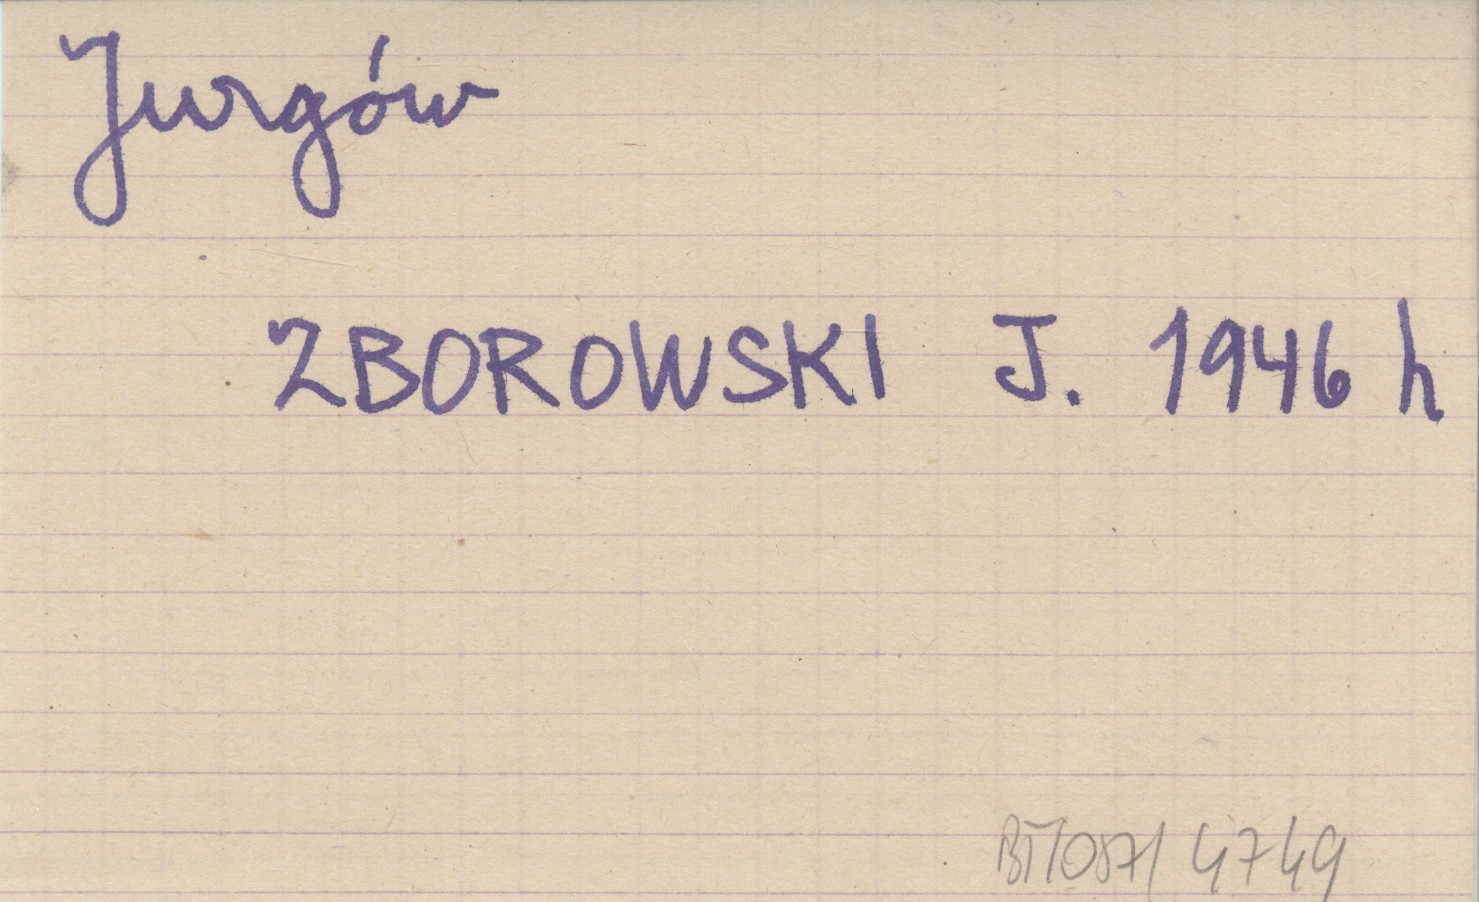 Jurgów
ZBOROWSKI J. 1946 h
BT/087/ 4749